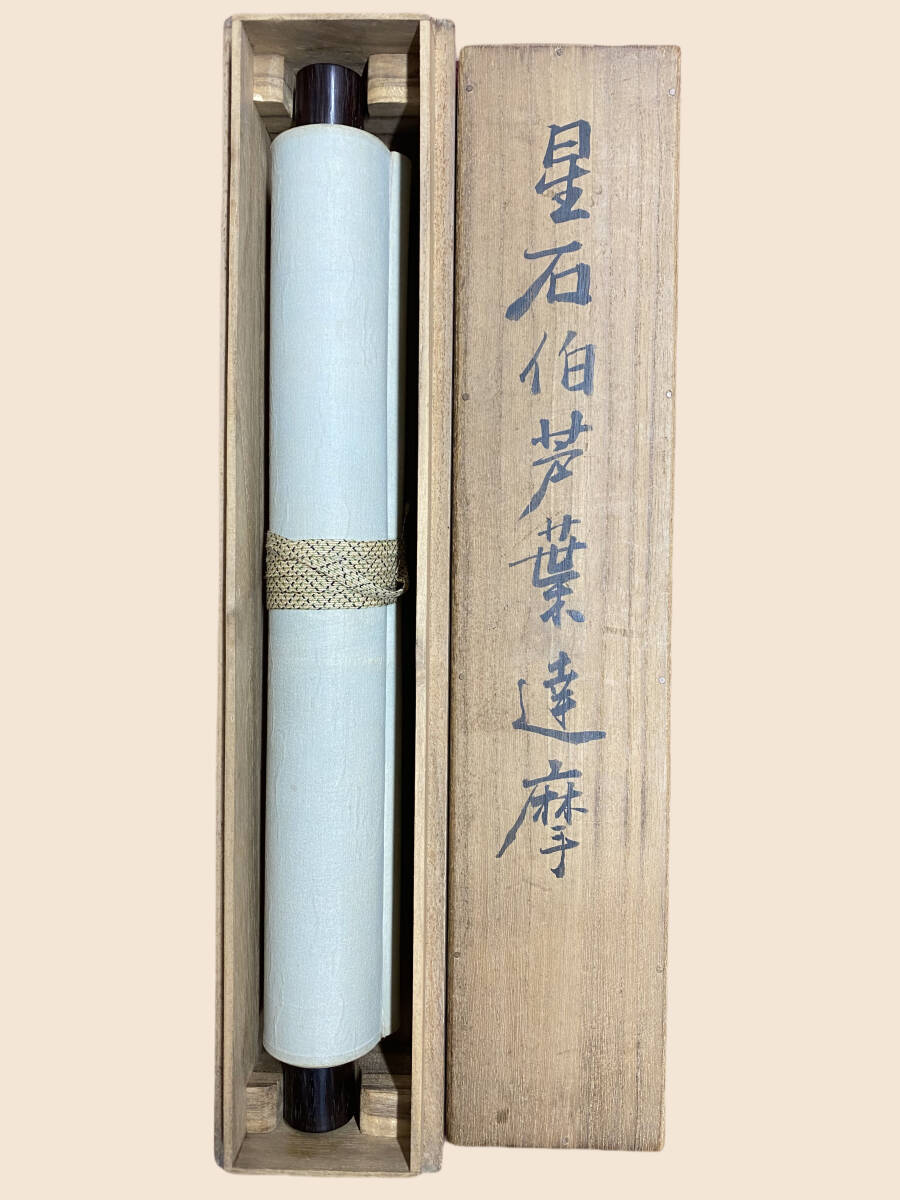 星石伯芦葉達摩